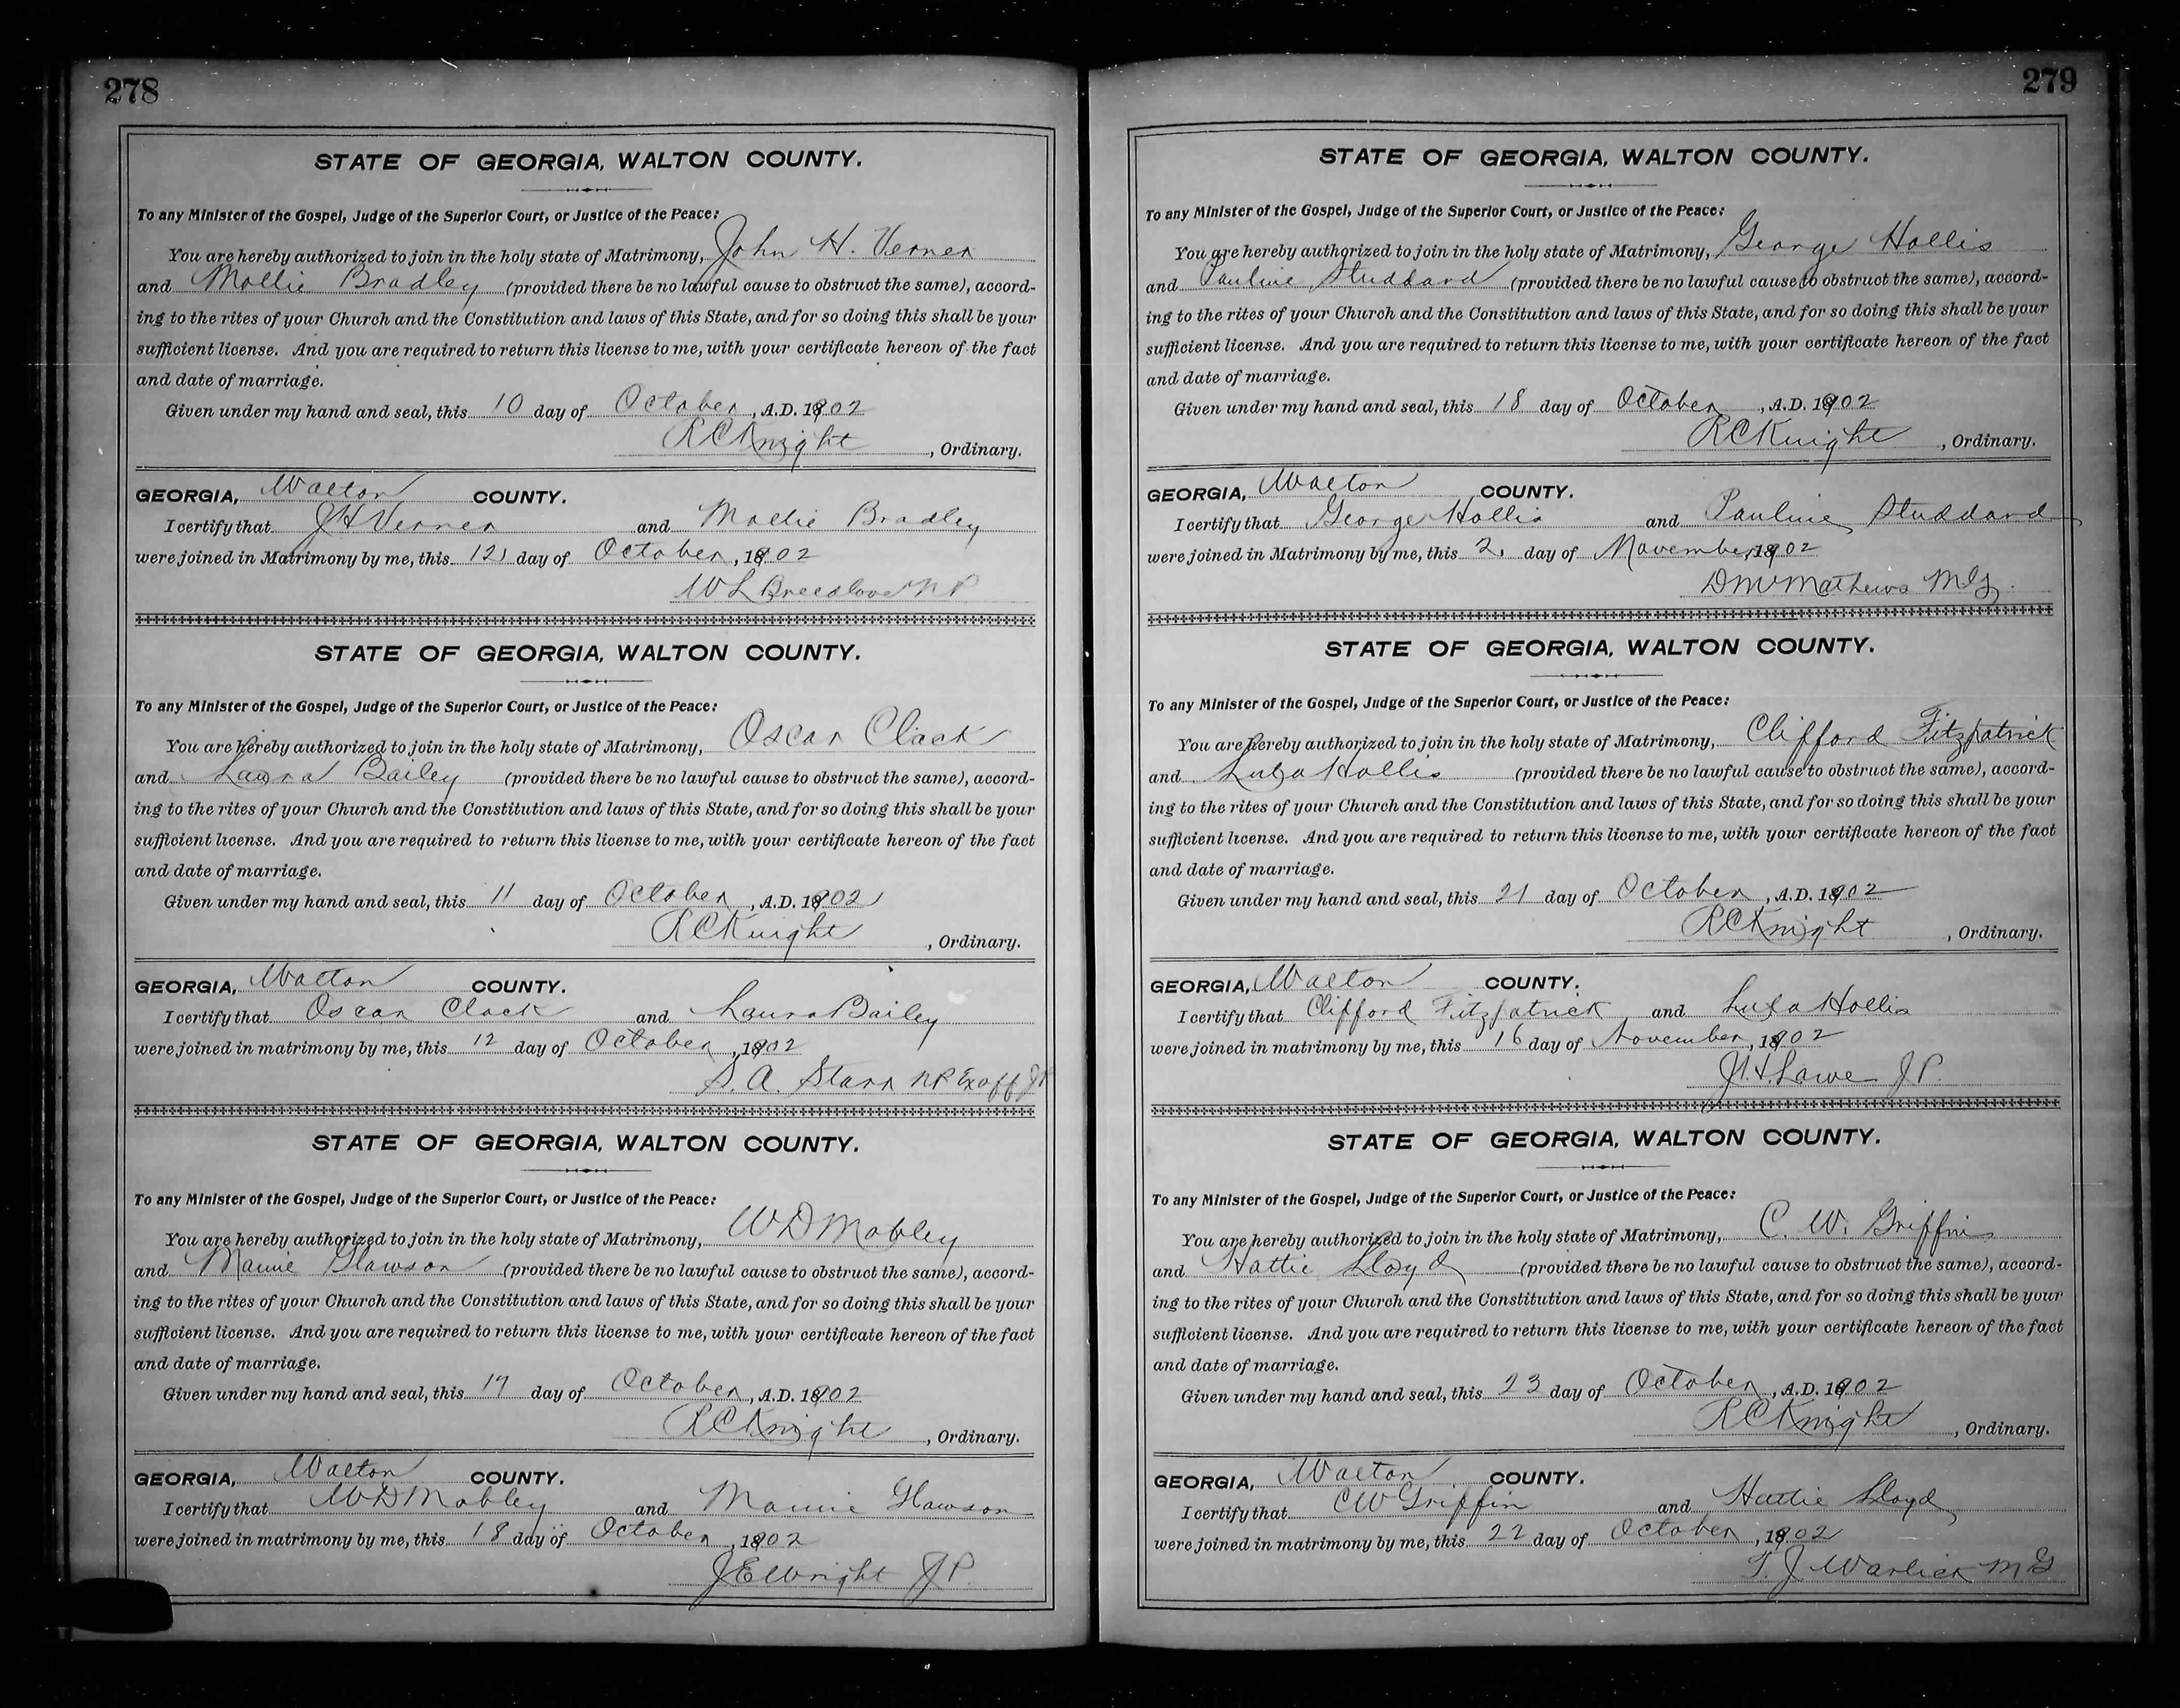 278
STATE OF GEORGIA, WALTON COUNTY.
To any Minister of the Gospel, Judge of the Superior Court, or Justice of the Peace:
You are hereby authorized to join in the holy state of Matrimony, John H. Verner
and Mollie Bradley (provided there be no lawful cause to obstruct the same), accord-
ing to the rites of your Church and the Constitution and laws of this State, and for so doing this shall be your
sufficient license. And you are required to return this license to me, with your certificate hereon of the fact
and date of marriage.
Given under my hand and seal, this 10 day of October, A.D. 1902
R C Knight, Ordinary.
GEORGIA, Walton COUNTY.
I certify that J H Verner and Mollie Bradley
were joined in Matrimony by me, this 12 day of October, 1902
W L Breedlove N P
STATE OF GEORGIA, WALTON COUNTY.
To any Minister of the Gospel, Judge of the Superior Court, or Justice of the Peace:
You are hereby authorized to join in the holy state of Matrimony, Oscar Clack
and Laura Bailey (provided there be no lawful cause to obstruct the same), accord-
ing to the rites of your Church and the Constitution and laws of this State, and for so doing this shall be your
sufficient license. And you are required to return this license to me, with your certificate hereon of the fact
and date of marriage.
Given under my hand and seal, this 11 day of October, A.D. 1902
R C Knight, Ordinary.
GEORGIA, Walton COUNTY.
I certify that Oscar Clack and Laura Bailey
were joined in matrimony by me, this 12 day of October, 1902
S. A. Starr N P Ex off J P
STATE OF GEORGIA, WALTON COUNTY.
To any Minister of the Gospel, Judge of the Superior Court, or Justice of the Peace:
You are hereby authorized to join in the holy state of Matrimony, W D Mobley
and Mamie Glawson (provided there be no lawful cause to obstruct the same), accord-
ing to the rites of your Church and the Constitution and laws of this State, and for so doing this shall be your
sufficient license. And you are required to return this license to me, with your certificate hereon of the fact
and date of marriage.
Given under my hand and seal, this 17 day of October, A.D. 1902
R C Knight, Ordinary.
GEORGIA, Walton COUNTY.
I certify that W D Mobley and Mamie Glawson
were joined in matrimony by me, this 18 day of October, 1902
J E Wright J P.
279
STATE OF GEORGIA, WALTON COUNTY.
To any Minister of the Gospel, Judge of the Superior Court, or Justice of the Peace:
You are hereby authorized to join in the holy state of Matrimony, George Hollis
and Pauline Studdard (provided there be no lawful cause to obstruct the same), accord-
ing to the rites of your Church and the Constitution and laws of this State, and for so doing this shall be your
sufficient license. And you are required to return this license to me, with your certificate hereon of the fact
and date of marriage.
Given under my hand and seal, this 18 day of October, A.D. 1902
R C Knight, Ordinary.
GEORGIA, Walton COUNTY.
I certify that George Hollis and Pauline Studdard
were joined in Matrimony by me, this 2. day of November, 1902
D M Mathews M G.
STATE OF GEORGIA, WALTON COUNTY.
To any Minister of the Gospel, Judge of the Superior Court, or Justice of the Peace:
You are hereby authorized to join in the holy state of Matrimony, Clifford Fitzpatrick
and Hollis (provided there be no lawful cause to obstruct the same), accord-
ing to the rites of your Church and the Constitution and laws of this State, and for so doing this shall be your
sufficient license. And you are required to return this license to me, with your certificate hereon of the fact
and date of marriage.
Given under my hand and seal, this 21 day of October, A.D. 1902
R C Knight, Ordinary.
GEORGIA, Walton COUNTY.
I certify that Clifford Fitzpatrick and Hollis
were joined in matrimony by me, this 16 day of November, 1902
Lowe J P.
STATE OF GEORGIA, WALTON COUNTY.
To any Minister of the Gospel, Judge of the Superior Court, or Justice of the Peace:
You are hereby authorized to join in the holy state of Matrimony, C. W. Griffin
and Hattie Lloyd (provided there be no lawful cause to obstruct the same), accord-
ing to the rites of your Church and the Constitution and laws of this State, and for so doing this shall be your
sufficient license. And you are required to return this license to me, with your certificate hereon of the fact
and date of marriage.
Given under my hand and seal, this 23 day of October, A.D. 1902
R C Knight, Ordinary.
GEORGIA, Walton COUNTY.
I certify that C W Griffin and Hattie Lloyd
were joined in matrimony by me, this 22 day of October, 1902
T. J. Warlick M G